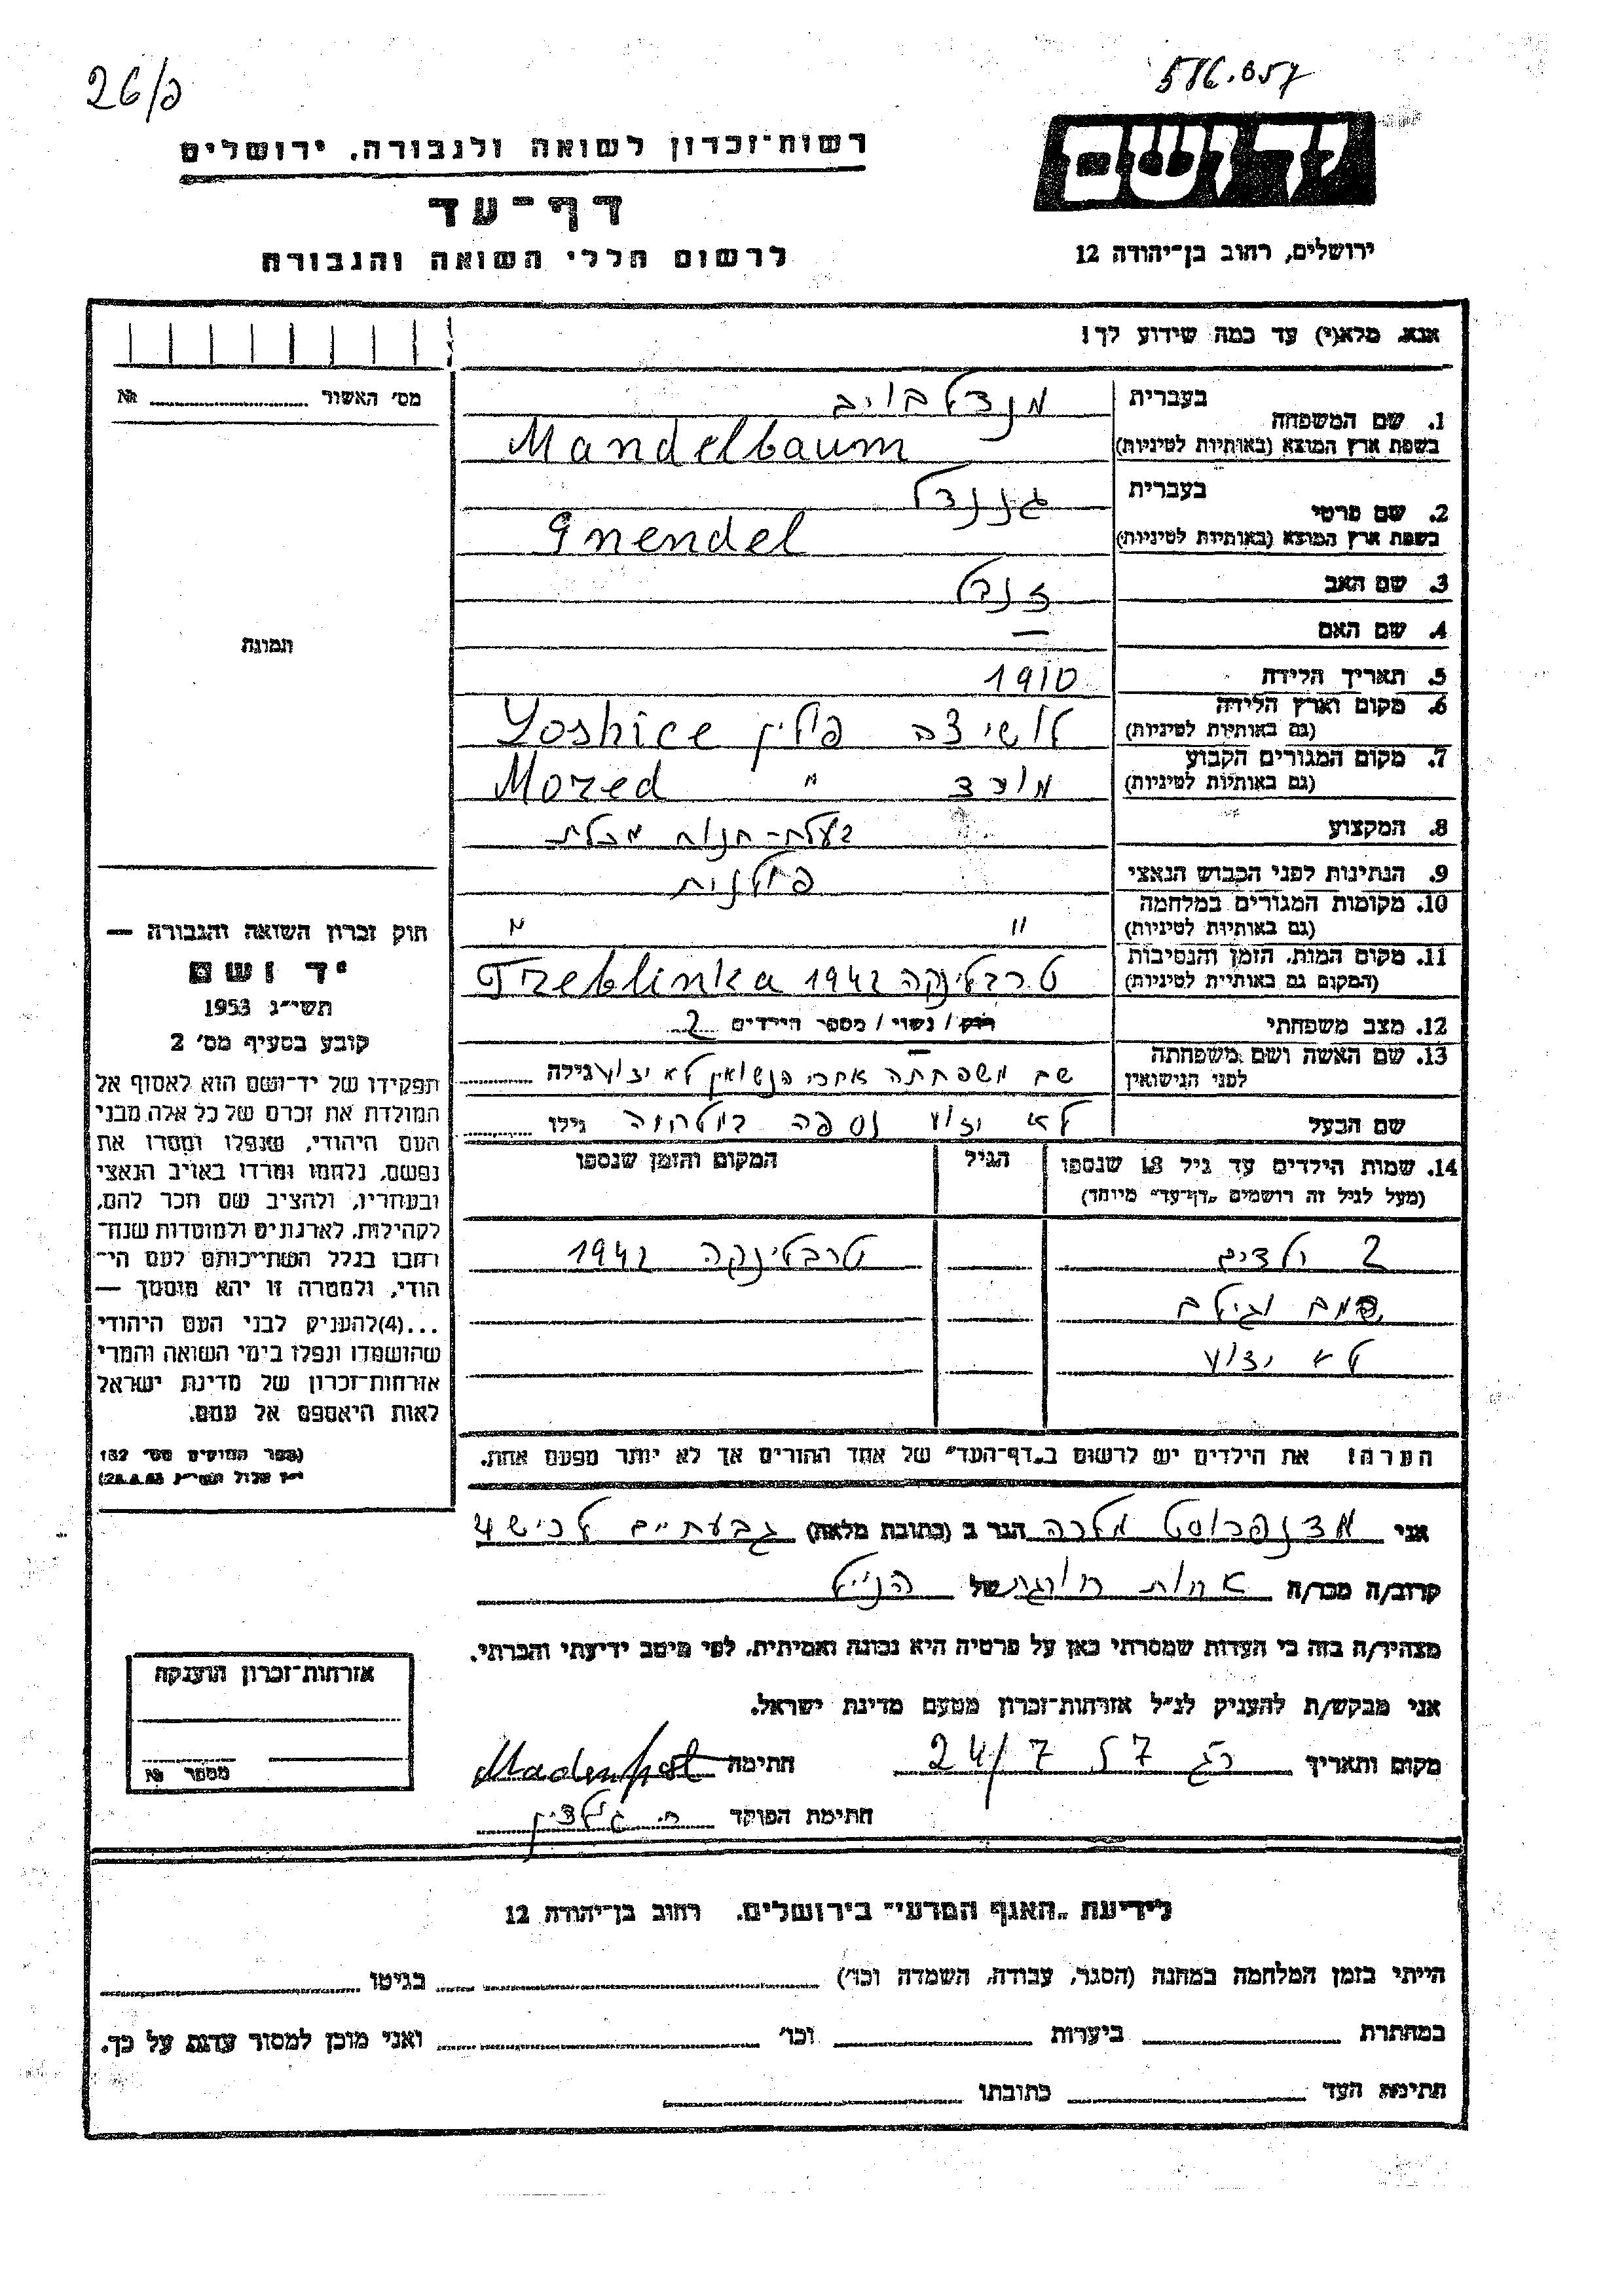 26/כ
586.057
רשות-זכרון לשואה ולגבורה, ירושלים
דף-עד
לרשום חללי השואה והגבורה
יד ושם
ירושלים, רחוב בן-יהודה 12
אנא, מלא(י) עד כמה שידוע לך!
מס' האשור № 
1. שם המשפחה בעברית מנדלבוים
בשפת ארץ המוצא (באותיות לטיניות) Mandelbaum
2. שם פרטי בעברית גננדל
בשפת ארץ המוצא (באותיות לטיניות) Gnendel
3. שם האב זנדל
4. שם האם —
5. תאריך הלידה 1910
6. מקום וארץ הלידה (גם באותיות לטיניות) לושיצה פולין Loshice
7. מקום המגורים הקבוע (גם באותיות לטיניות) מורד " Mored
8. המקצוע בעלת-חנות מכלת
9. הנתינות לפני הכבוש הנאצי פולנית
10. מקומות המגורים במלחמה (גם באותיות לטיניות) " "
11. מקום המות, הזמן והנסיבות (המקום גם באותיית לטיניות) טרבלינקה 1942 Treblinka
12. מצב משפחתי רוק / נשוי / מספר הילדים 2
13. שם האשה ושם משפחתה לפני הנישואין שם משפחתה אחרי הנשואין לא ידוע גילה
שם הבעל לא ידוע נספה במלחמה גילו
14. שמות הילדים עד גיל 18 שנספו הגיל המקום והזמן שנספו
(מעל לגיל זה רושמים "דף-עד" מיוחד)
2 ילדים טרבלינקה 1942
שמם וגילם
לא ידוע
הערה! את הילדים יש לרשום ב"דף-העד" של אחד ההורים אך לא יותר מפעם אחת.
תמונה
חוק זכרון השואה והגבורה —
יד ושם
תשי"ג 1953
קובע בסעיף מס' 2
תפקידו של יד-ושם הוא לאסוף אל
המולדת את זכרם של כל אלה מבני
העם היהודי, שנפלו ומסרו את
נפשם, נלחמו ומרדו באויב הנאצי
ובעוזריו, ולהציב שם וזכר להם,
לקהילות, לארגונים ולמוסדות שנח-
רחבו בגלל השתייכותם לעם הי-
הודי, ולמטרה זו יהא מוסמך —
...(4) להעניק לבני העם היהודי
שהושמדו ונפלו בימי השואה והמרי
אזרחות-זכרון של מדינת ישראל
לאות היאספם אל עמם.
(ספר החוקים מס' 132
אני מדנפרוסט מלכה הגר ב (כתובת מלאה) גבעתיים לכיש 4
קרוב/ה מכר/ה אחות חורגת של הנ"ל
מצהיר/ה בזה כי העדות שמסרתי כאן על פרטיה היא נכונה ואמיתית, לפי מיטב ידיעתי והכרתי.
אני מבקש/ת להעניק לנ"ל אזרחות-זכרון מטעם מדינת ישראל.
מקום ותאריך רג 24/7 57 חתימה Madenfrost
חתימת הפוקד
אזרחות-זכרון הוענקה
מספר №
לידיעת "האגף המדעי" בירושלים, רחוב בן-יהודה 12
הייתי בזמן המלחמה במחנה (הסגר, עבודה, השמדה וכו') בגיטו
במחתרת ביערות וכו' ואני מוכן למסור עדות על כך.
חתימת העד כתובתו